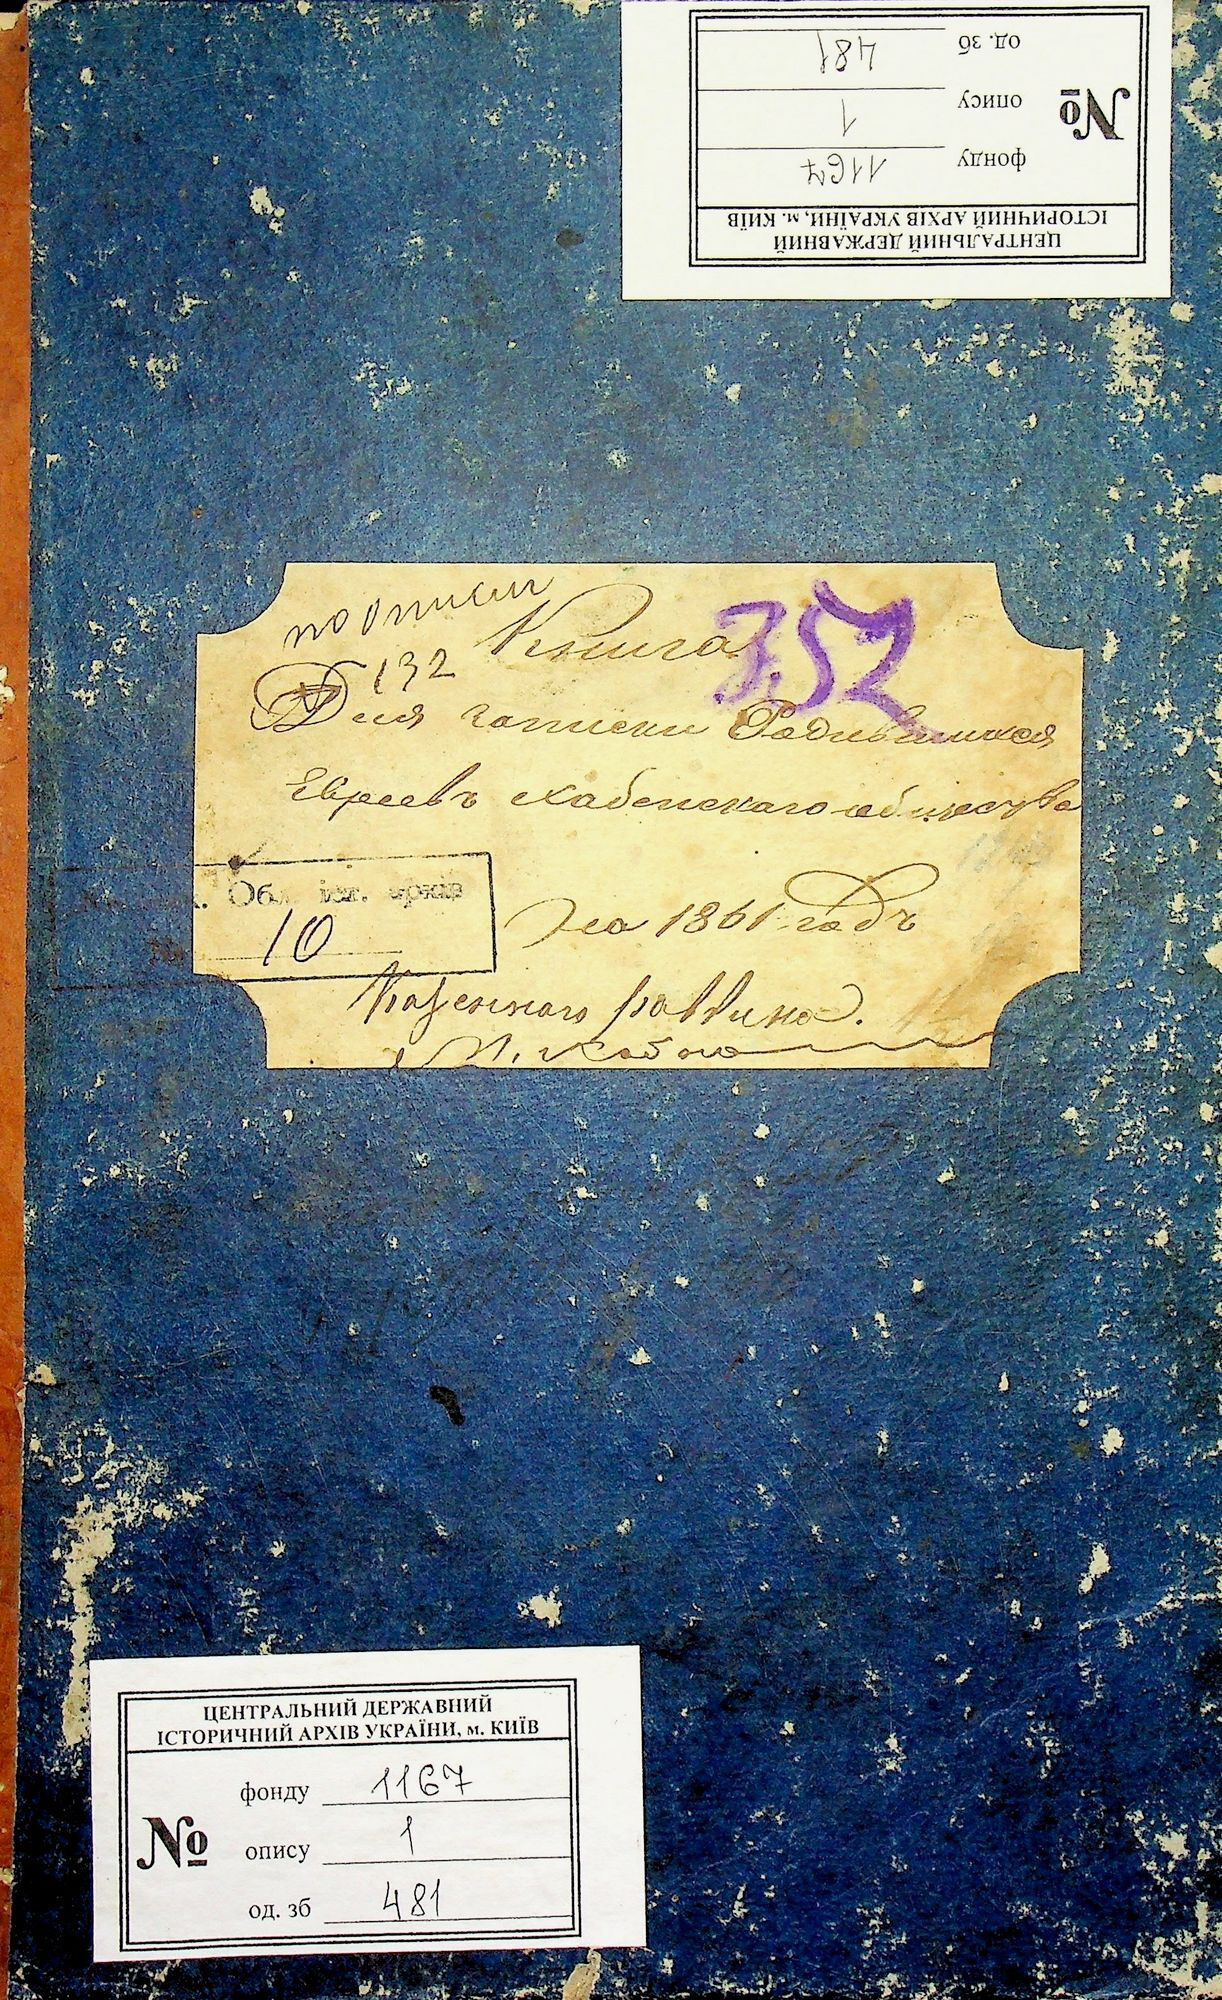 ЦЕНТРАЛЬНИЙ ДЕРЖАВНИЙ
ІСТОРИЧНИЙ АРХІВ УКРАЇНИ, м. КИЇВ
фонду 1167
№ опису 1
од. зб 481
по описи
132
Книга
352
Для записки Родившихся
Евреевъ Хабенскаго общества
на 1861 годъ
Обл. іст. архів
10
Казеннаго раввина.
ЦЕНТРАЛЬНИЙ ДЕРЖАВНИЙ
ІСТОРИЧНИЙ АРХІВ УКРАЇНИ, м. КИЇВ
фонду 1167
№ опису 1
од. зб 481